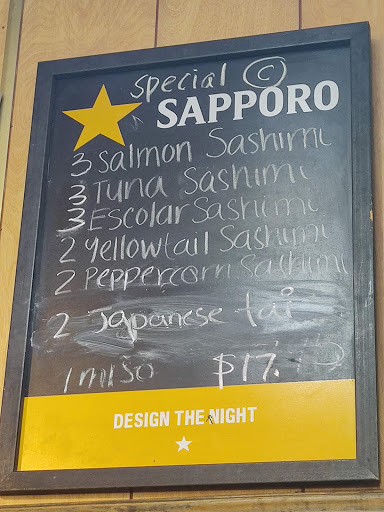 special ©
SAPPORO
3 Salmon Sashimi
3 Tuna Sashimi
3 Escolar Sashimi
2 Yellowtail Sashimi
2 Peppercorn Sashimi
2 Japanese tai
1 miso $17.
DESIGN THE NIGHT